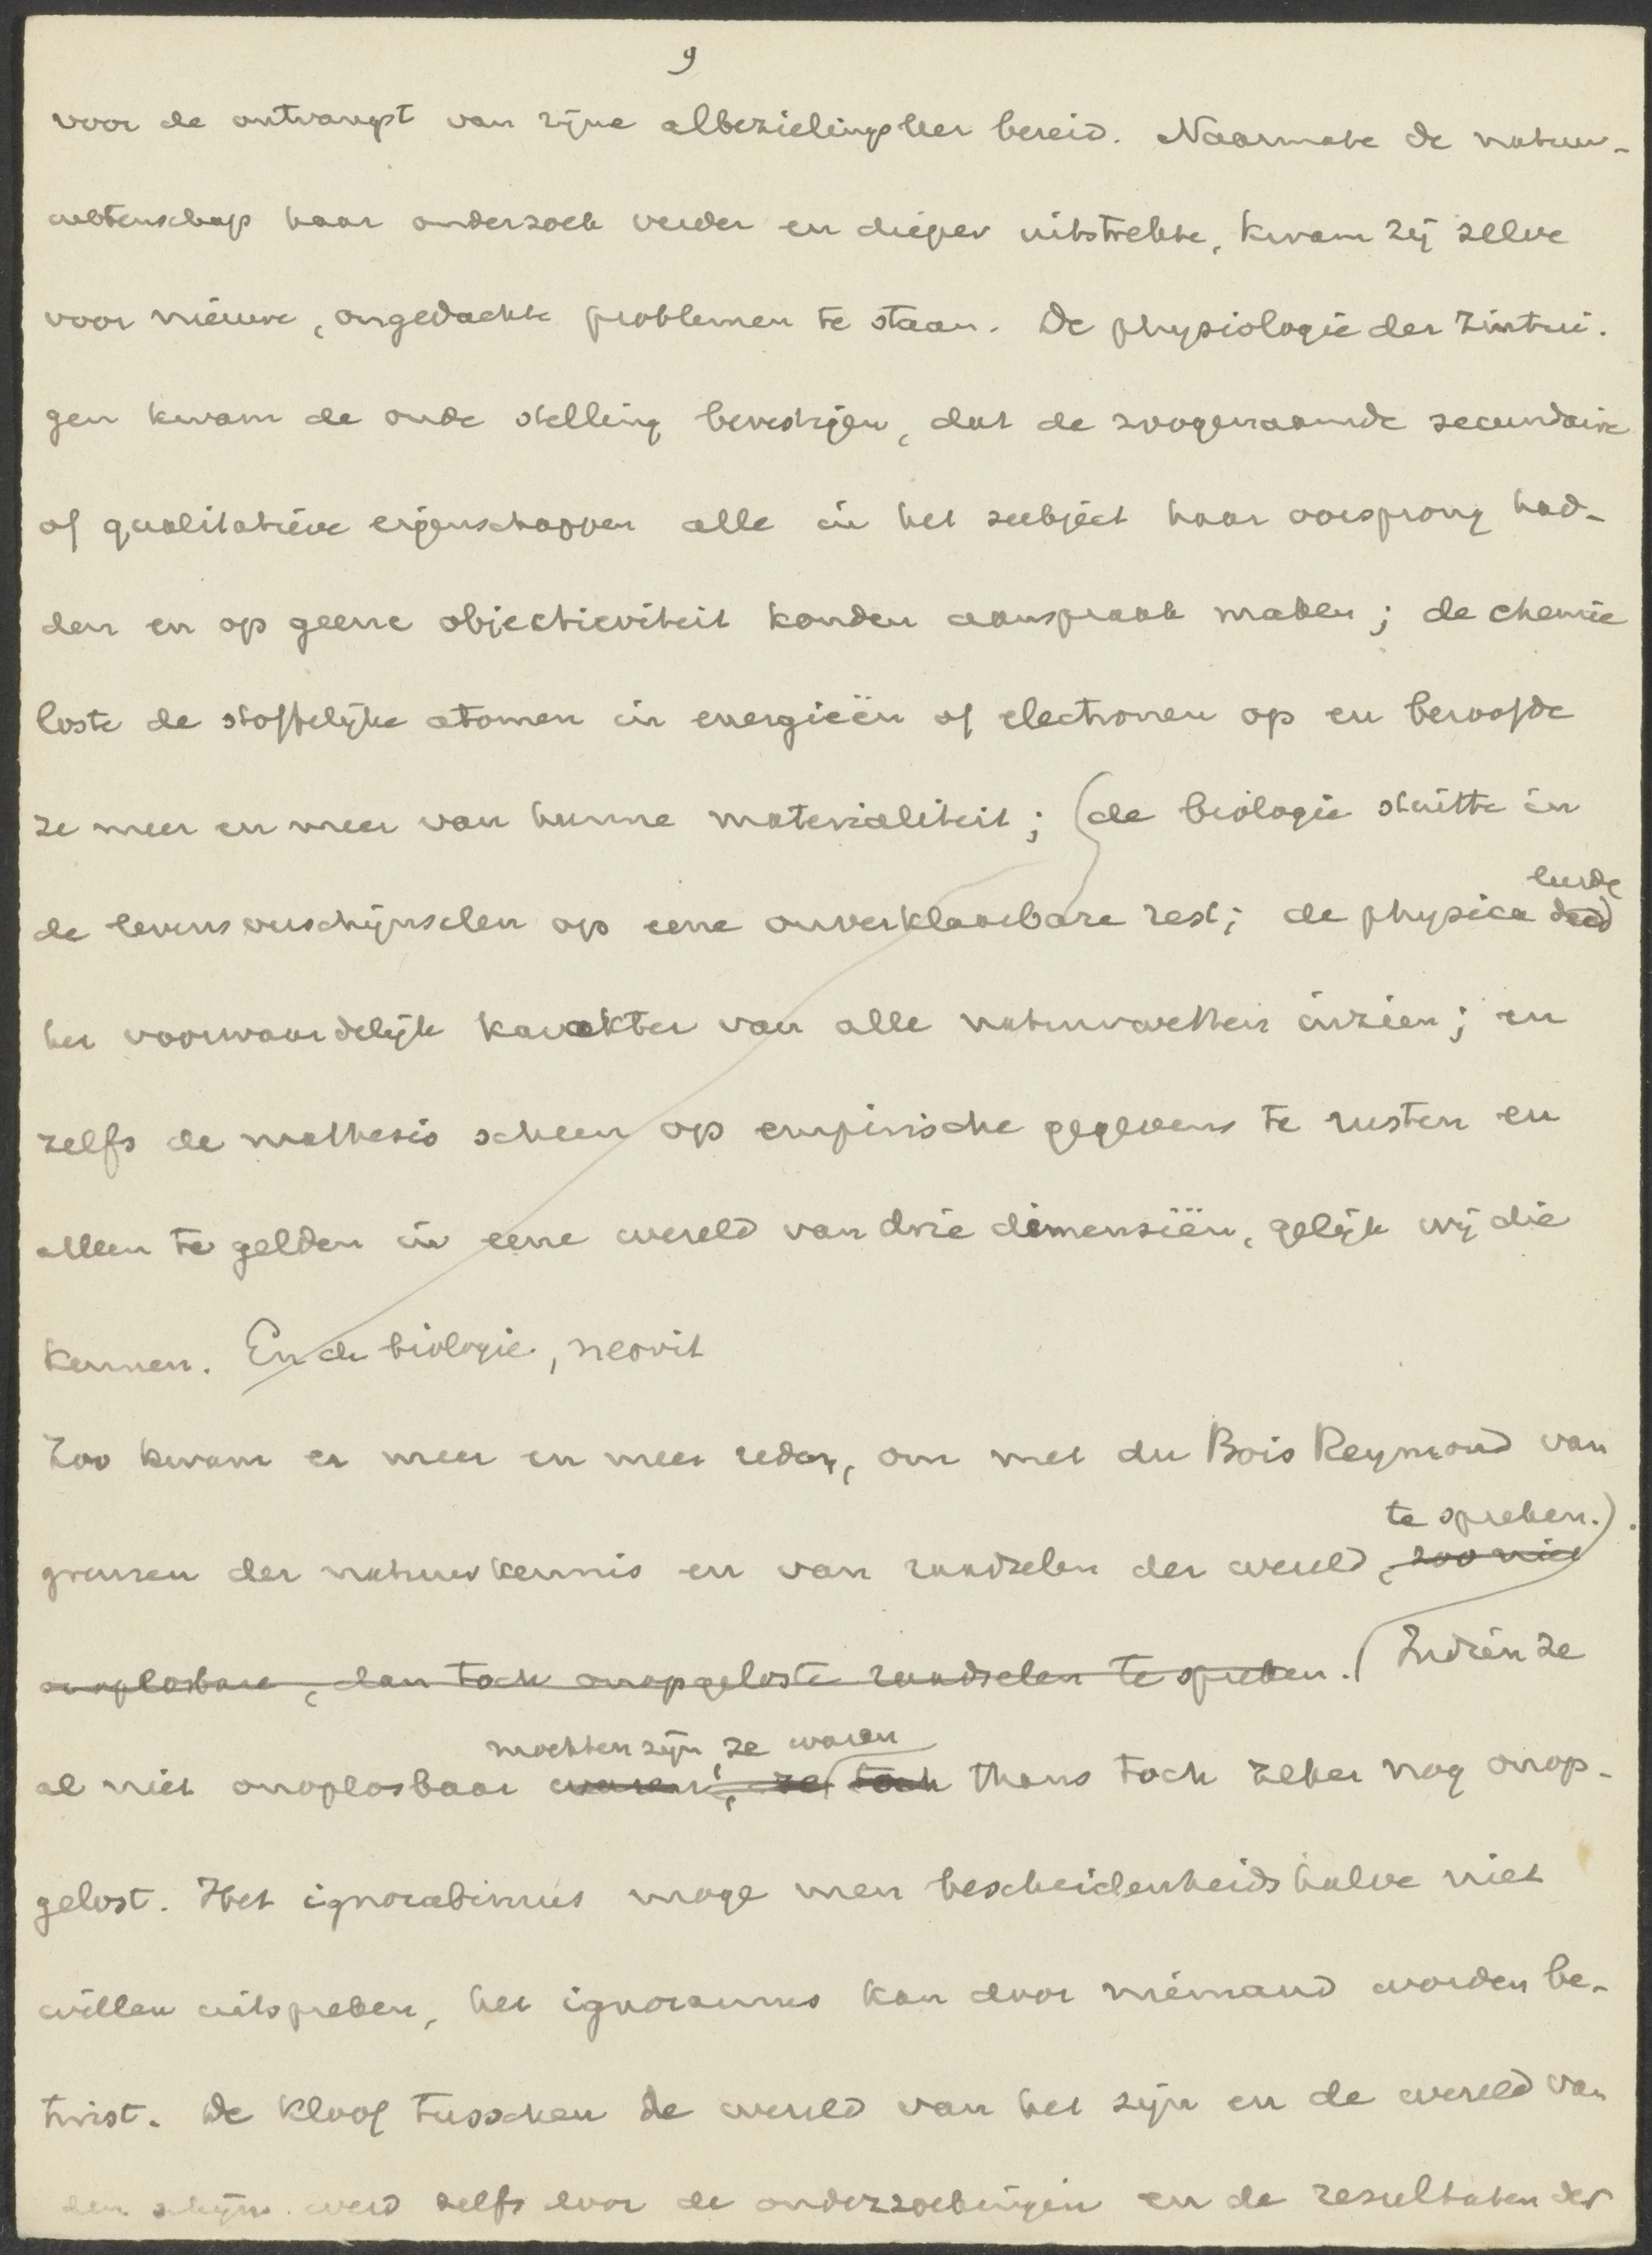 9
voor de ontvangst van zijne albezielingsleer bereid. Naarmate de natuur-
wetenschap haar onderzoek verder en dieper uitstrekte, kwam zij zelve
voor nieuwe, ongedachte problemen te staan. De physiologie der zintui-
gen kwam de oude stelling bevestigen, dat de zoogenaamde secundaire
of qualitatieve eigenschappen alle in het subject haar oorsprong had-
den en op geene objectieviteit konden aanspraak maken; de chemie
loste de stoffelijke atomen in energieën of electronen op en beroofde
ze meer en meer van hunne materialiteit; (de biologie stuitte in
leerde
de levensverschijnselen op eene onverklaarbare rest; de physica deed
het voorwaardelijk karakter van alle natuurwetten inzien; en
zelfs de mathesis scheen op empirische gegevens te rusten en
alleen te gelden in eene wereld van drie dimensiën, gelijk wij die
kennen. En de biologie, neovit
Zoo kwam er meer en meer reden, om met du Bois Reymond van
te spreken.).
grenzen der natuurkennis en van raadselen der wereld, zoo niet
onoplosbare, dan toch onopgeloste raadselen te spreken. (Indien ze
mochten zijn, ze waren
al niet onoplosbaar waren, ze toch thans toch zeker nog onop-
gelost. Het ignorabimus moge men bescheidenheidshalve niet
willen uitspreken, het ignoramus kan door niemand worden be-
twist. De kloof tusschen de wereld van het zijn en de wereld van
den schijn werd zelfs door de onderzoekingen en de resultaten der